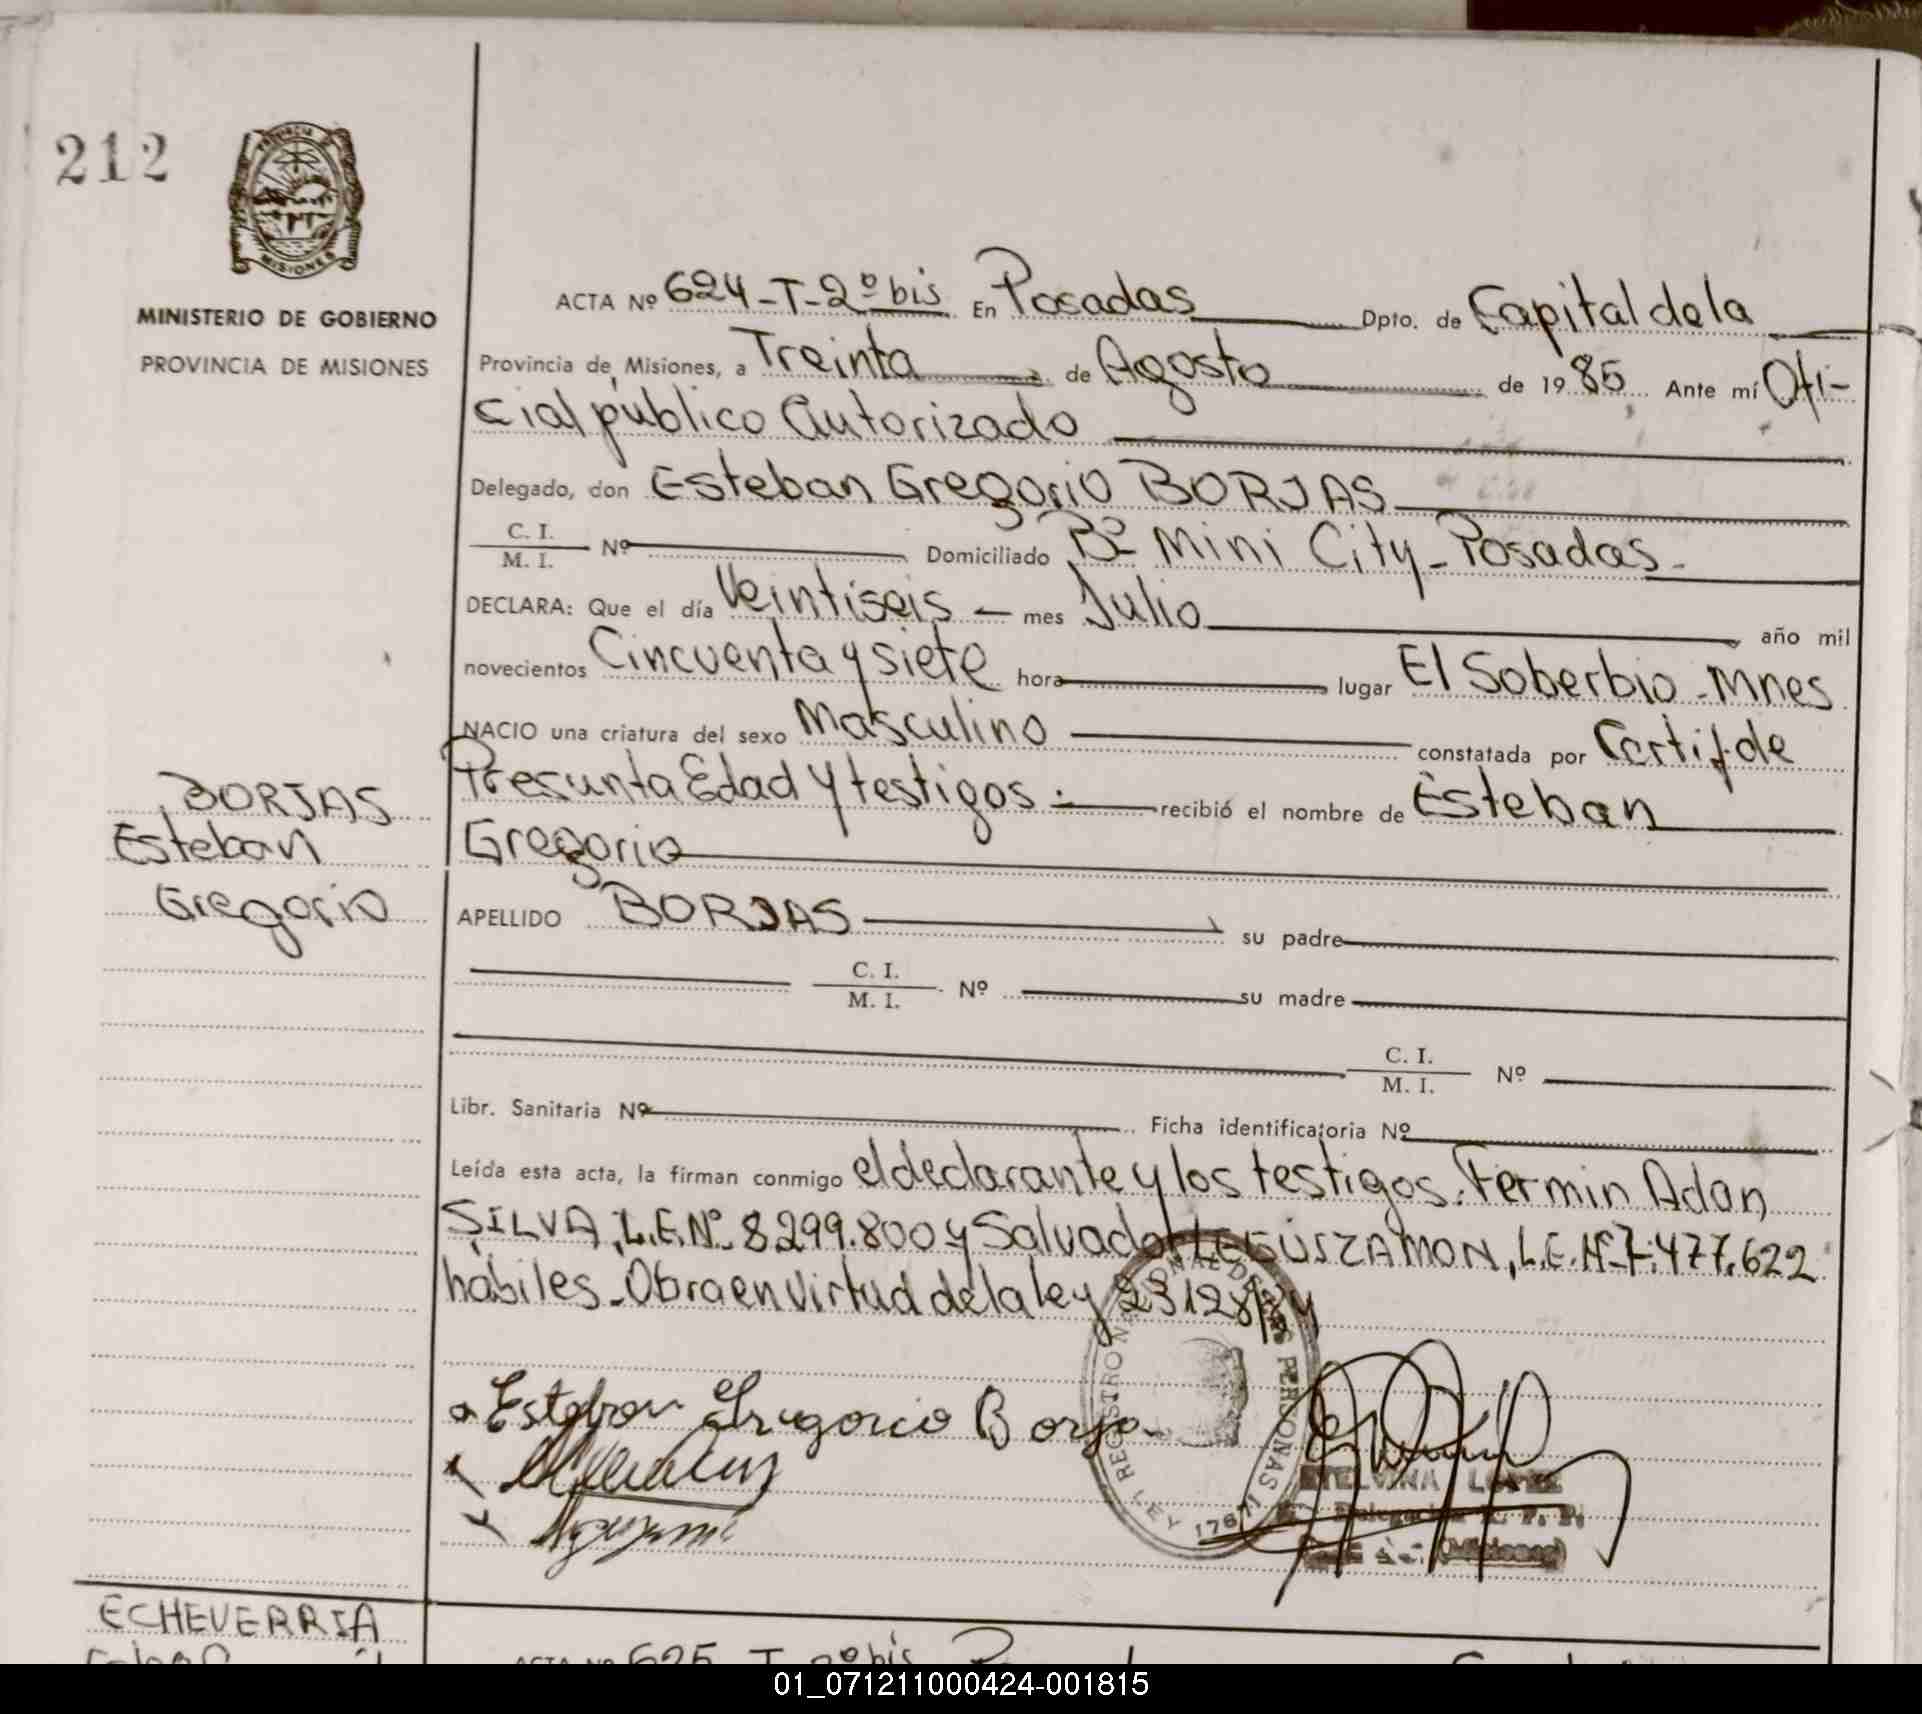 212
PROVINCIA DE
MISIONES
MINISTERIO DE GOBIERNO
PROVINCIA DE MISIONES
ACTA Nº 624-T-2º bis En Posadas Dpto. de Capital de la
Provincia de Misiones, a Treinta de Agosto de 1985 Ante mí Ofi-
cial público Autorizado
Delegado, don Esteban Gregorio BORJAS
C. I.
M. I. Nº Domiciliado Bº Mini City - Posadas -
DECLARA: Que el día Veintiseis — mes Julio año mil
novecientos Cincuenta y siete hora lugar El Soberbio - Mnes
NACIO una criatura del sexo Masculino constatada por Certif. de
Presunta Edad y testigos . recibió el nombre de Esteban
Gregorio
BORJAS
Esteban
Gregorio
APELLIDO BORJAS su padre
C. I.
M. I. Nº su madre
C. I.
M. I. Nº
Libr. Sanitaria Nº Ficha identificatoria Nº
Leída esta acta, la firman conmigo el declarante y los testigos. Fermin Adan
SILVA, L.E.Nº. 8.299.800 y Salvador LEGUIZAMON, L.E.Nº 7.477.622
hábiles - Obra en virtud de la ley 23128/84
Esteban Gregorio Borja
REGISTRO DE LAS PERSONAS
ETELVINA LOPEZ
(Misiones)
ECHEVERRIA
ACTA Nº 625 T 2º bis
01_071211000424-001815